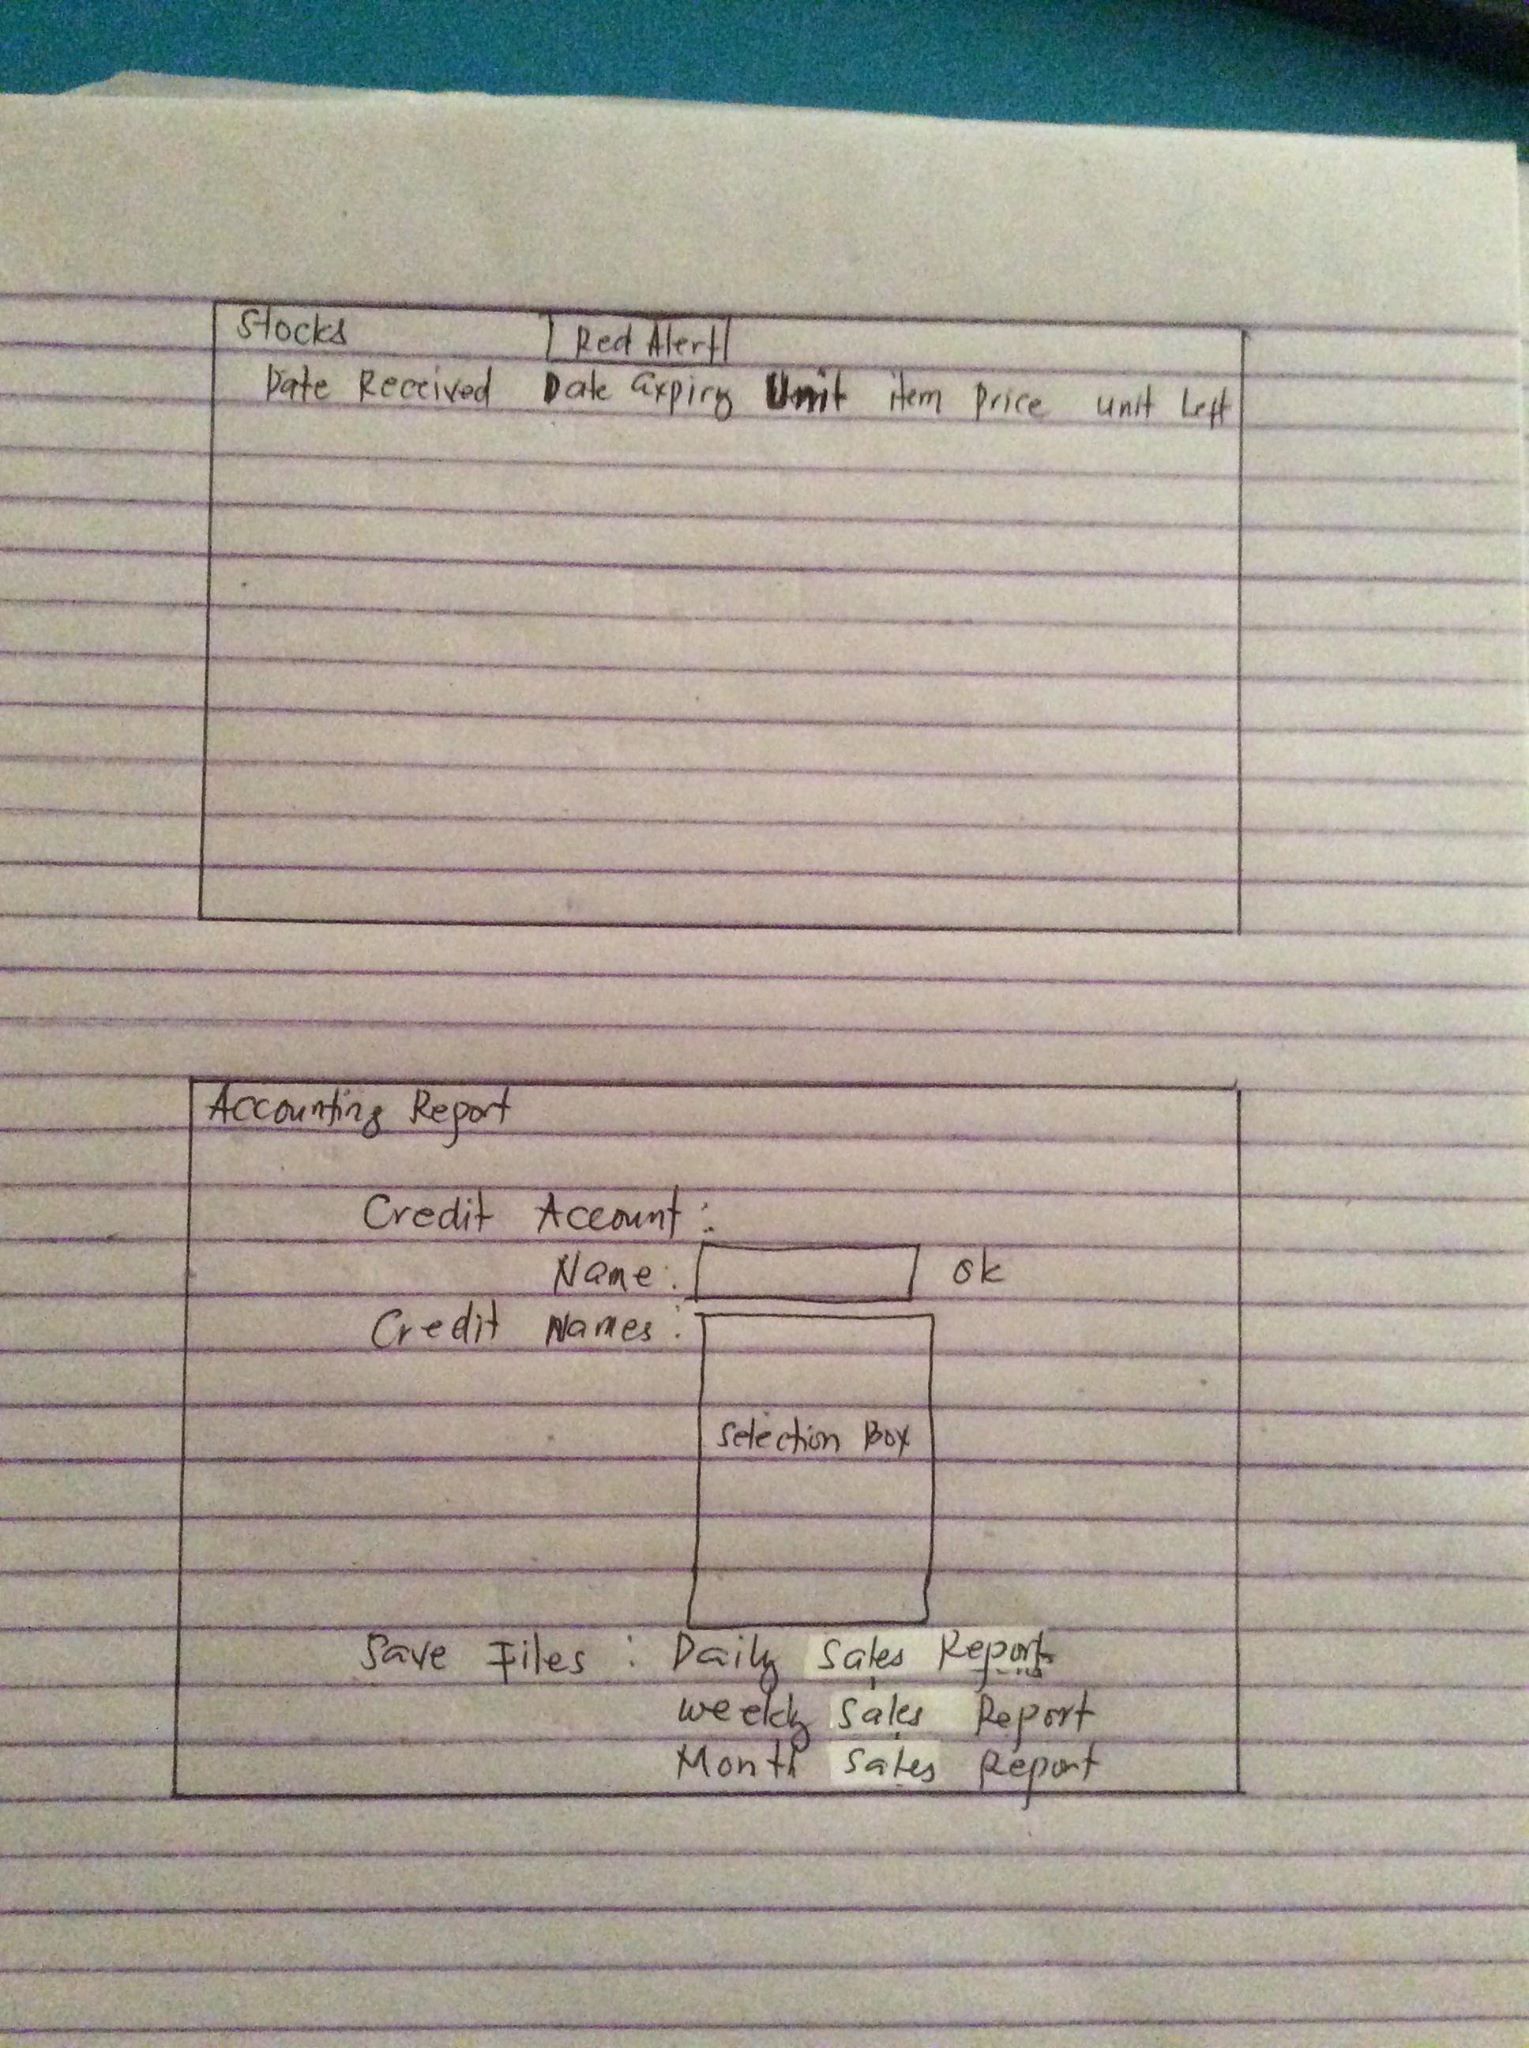 Stocks Red Alert
Date Received Date Expiry Unit item price unit Left
Accounting Report
Credit Account :
Name : ok
Credit Names :
Selection Box
Save Files : Daily Sales Report
weekly Sales Report
Month Sales Report